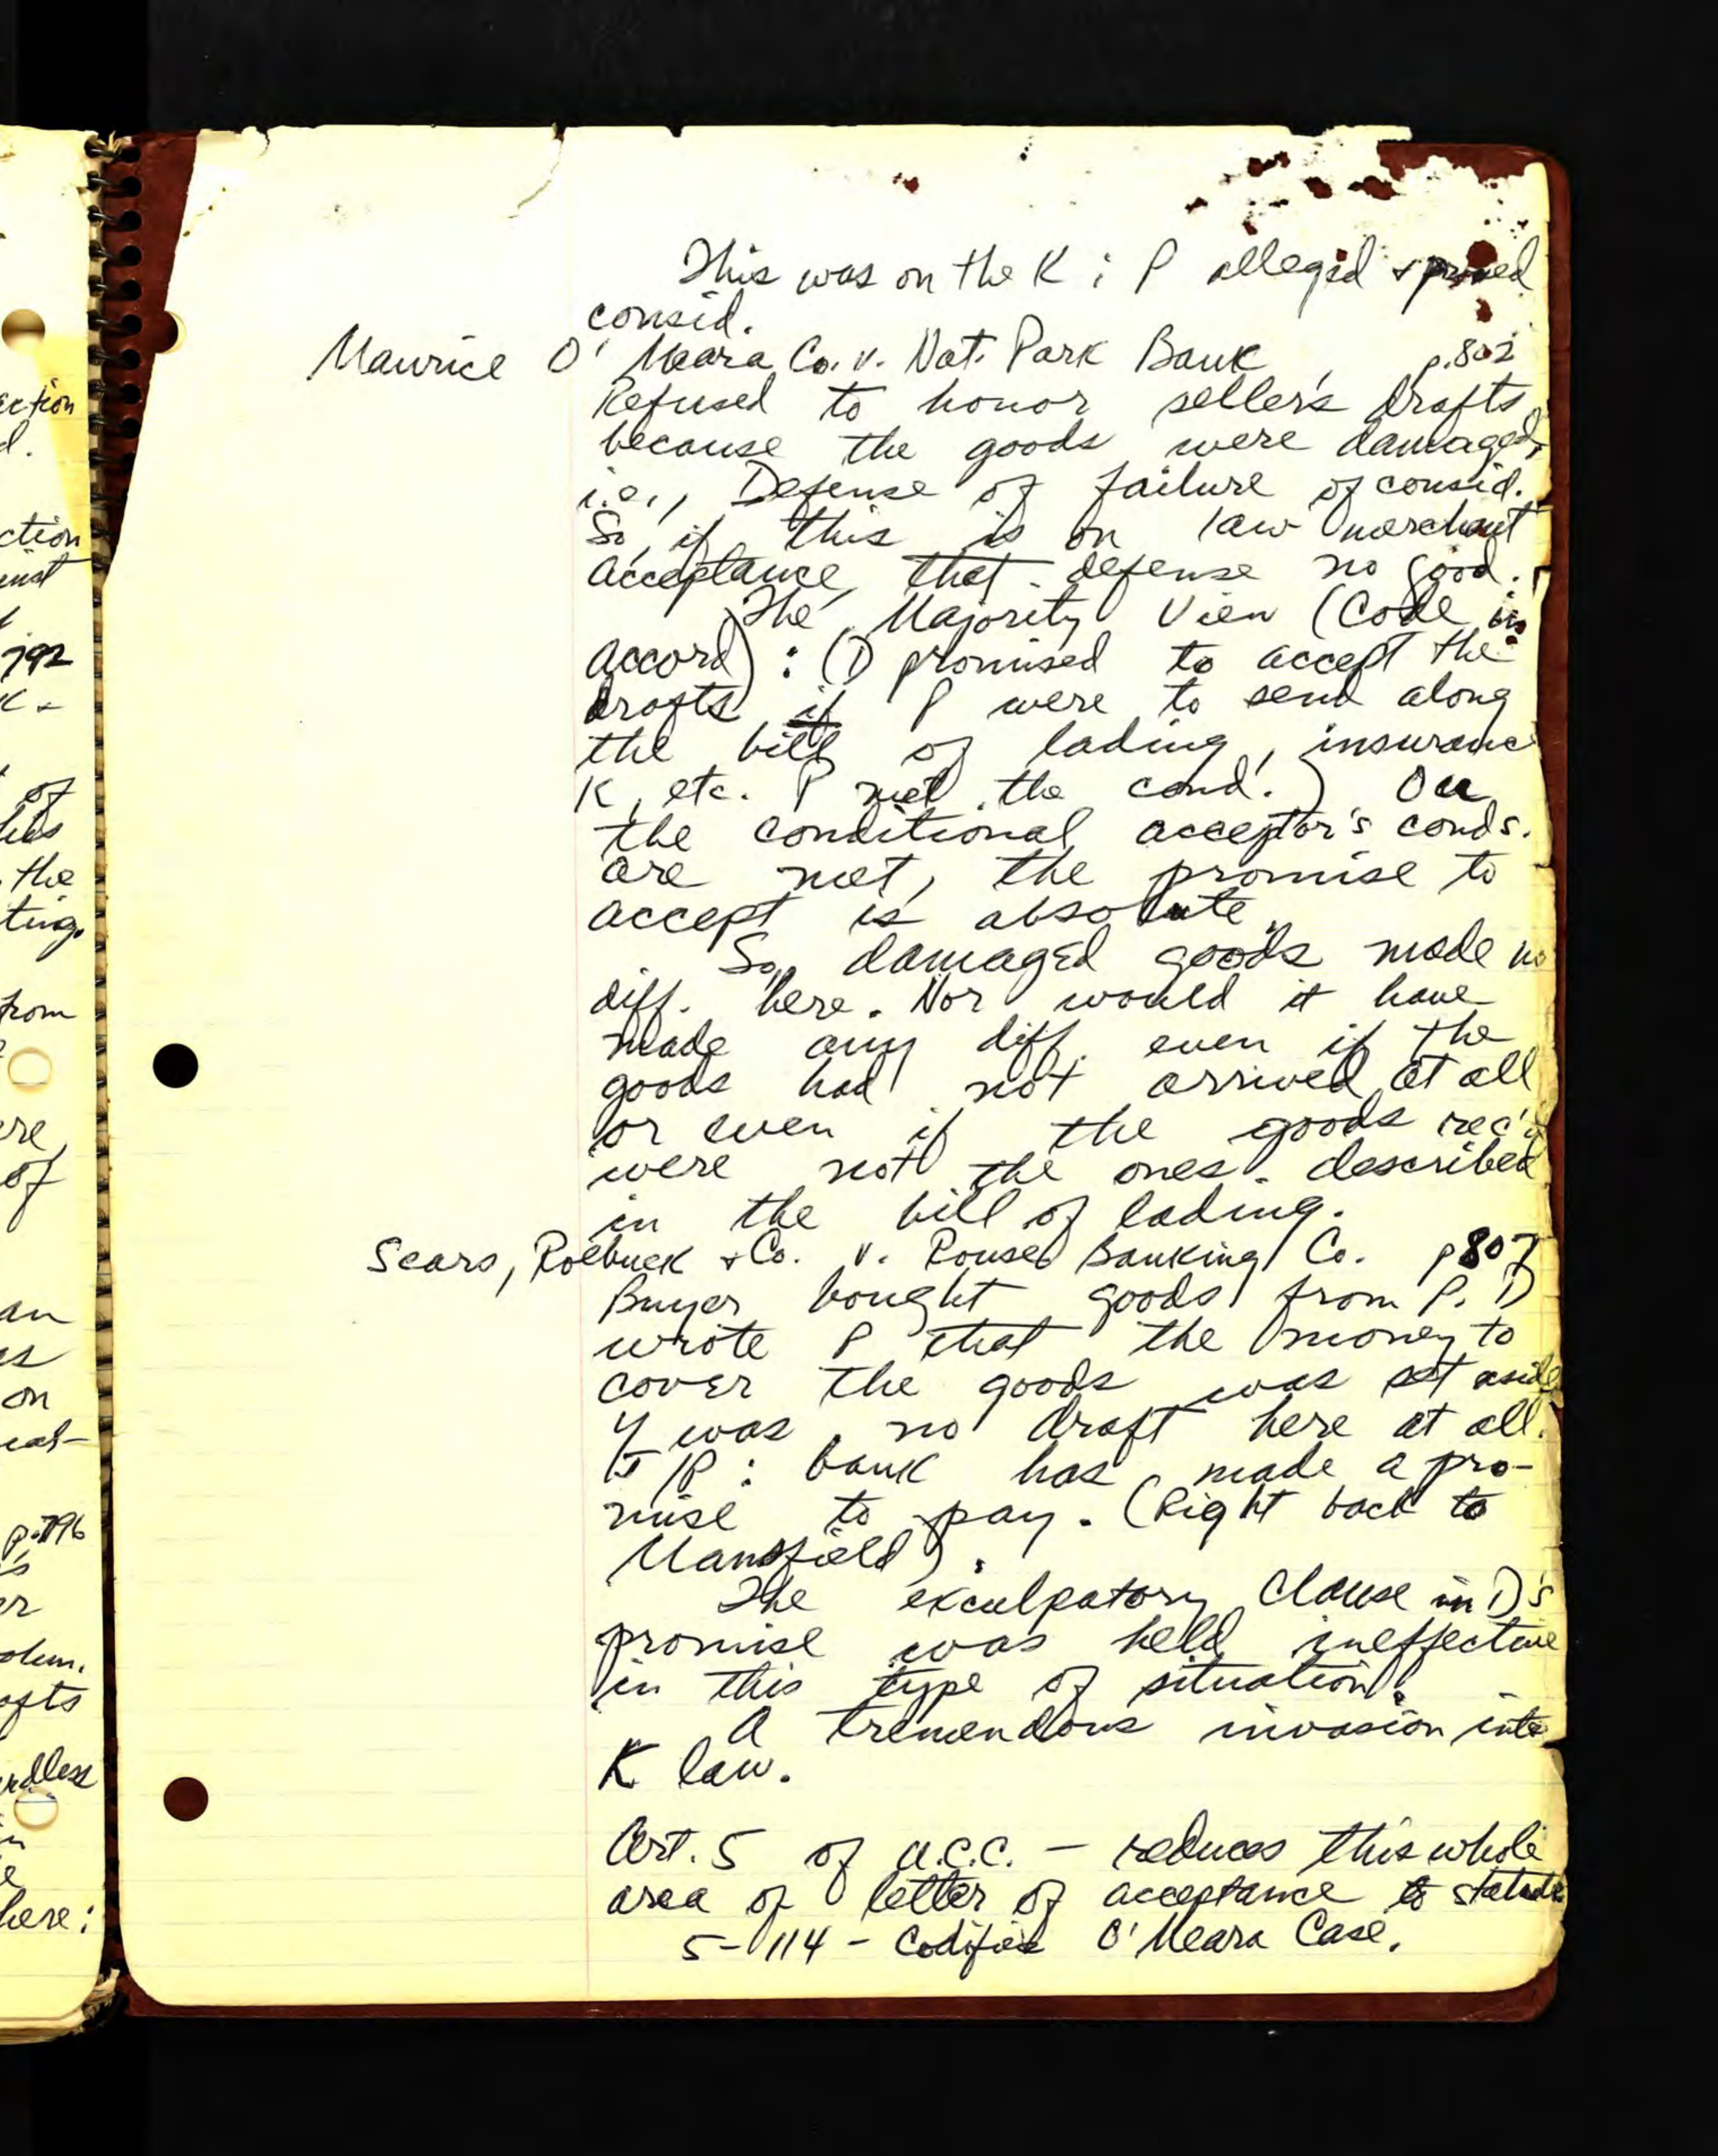 This was on the K ; P alleged + proved
consid.
Maurice O'Meara Co. v. Nat. Park Bank, p.802
Refused to honor seller's drafts
because the goods were damaged,
i.e., Defense of failure of consid.
So, if this is on law merchant
acceptance, that defense no good.
The Majority View (Code in
accord): (D promised to accept the
drafts if P were to send along
the bill of lading, insurance
K, etc. P met the cond.) Once
the conditional acceptor's conds.
are met, the promise to
accept is absolute.
So, damaged goods made no
diff. here. Nor would it have
made any diff. even if the
goods had not arrived at all
or even if the goods rec'd
were not the ones described
in the bill of lading.
Sears, Roebuck + Co. v. Rouse Banking Co. p807
Buyer bought goods from P. D
wrote P that the money to
cover the goods was set aside
was no draft here at all.
J/P : bank has made a pro-
mise to pay. (Right back to
Mansfield).
The exculpatory clause in D's
promise was held ineffective
in this type of situation.
A tremendous invasion into
K law.
Art. 5 of U.C.C. - reduces this whole
area of letter of acceptance to statute
5-114 - Codifies O'Meara Case.
ction
d.
ction
inst
792
of
the
ting.
from
re
of
an
on
p.796
er
rdless
here: